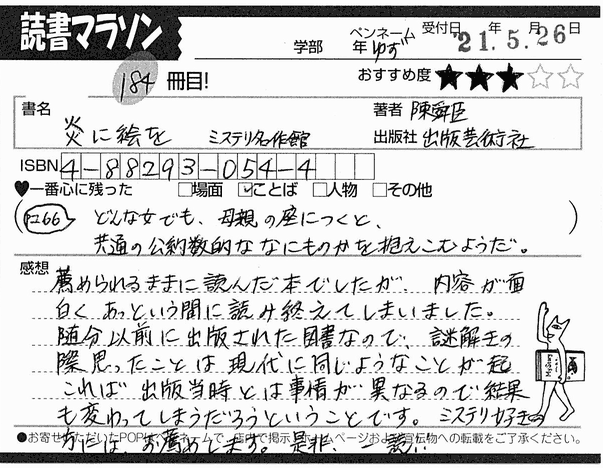 読書マラソン
学部 年 ペンネーム ゆず 受付日 '21年5月26日
184 冊目!
おすすめ度 ★★★☆☆
書名 炎に絵を ミステリ名作館
著者 陳舜臣
出版社 出版芸術社
ISBN 4-88293-054-4
♥一番心に残った □場面 ☑ことば □人物 □その他
P266 どんな女でも、母親の座につくと、
共通の公約数的ななにものかを抱えこむようだ。
感想 薦められるままに読んだ本でしたが、内容が面
白く あっという間に読み終えてしまいました。
随分以前に出版された図書なので、謎解きの
際思ったことは現代に同じようなことが起
これば 出版当時とは事情が異なるので結果
も変わってしまうだろうということです。ミステリ好きの
方には、お薦めします。是非、一読!!
●お寄せいただいたPOPはペンネームで、店内で掲示、ホームページおよび宣伝物への転載をご了承ください。